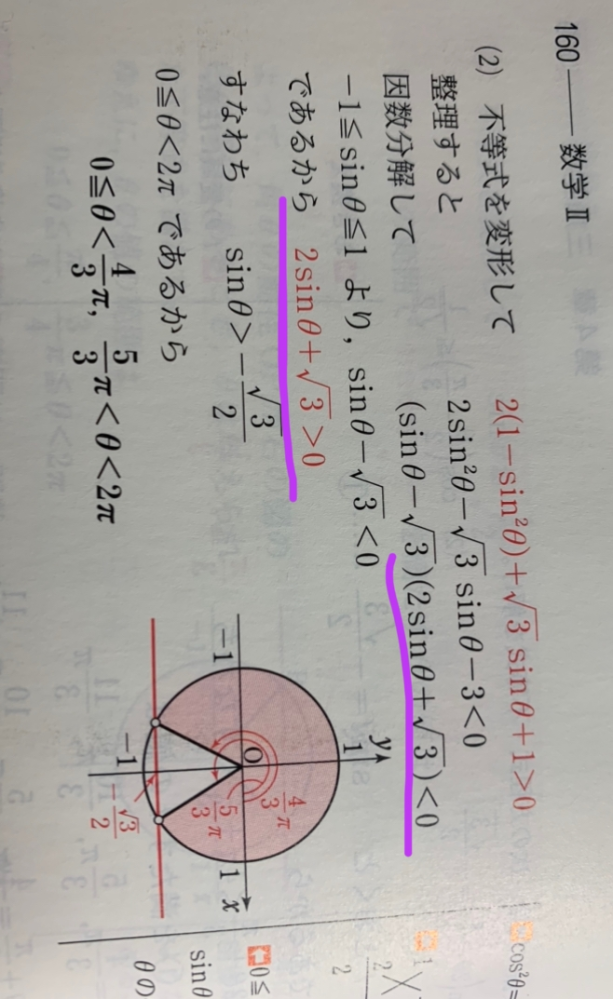 160 — 数学Ⅱ
(2) 不等式を変形して 2(1−sin²θ)+√3 sinθ+1>0
整理すると 2sin²θ−√3 sinθ−3<0
因数分解して (sinθ−√3)(2sinθ+√3)<0
−1≦sinθ≦1 より, sinθ−√3<0
であるから 2sinθ+√3>0
すなわち sinθ>−√3/2
0≦θ<2π であるから
0≦θ<4/3π, 5/3π<θ<2π
y
1
−1
O
1
x
4/3π
5/3π
−1
−√3/2
cos²θ=
0≦
sinθ
θの